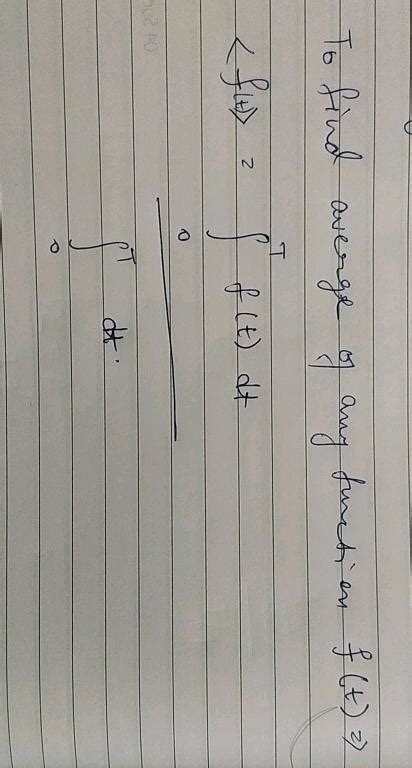 To find average of any function f(t) ⇒
<f(t)> = ∫₀ᵀ f(t) dt
∫₀ᵀ dt.